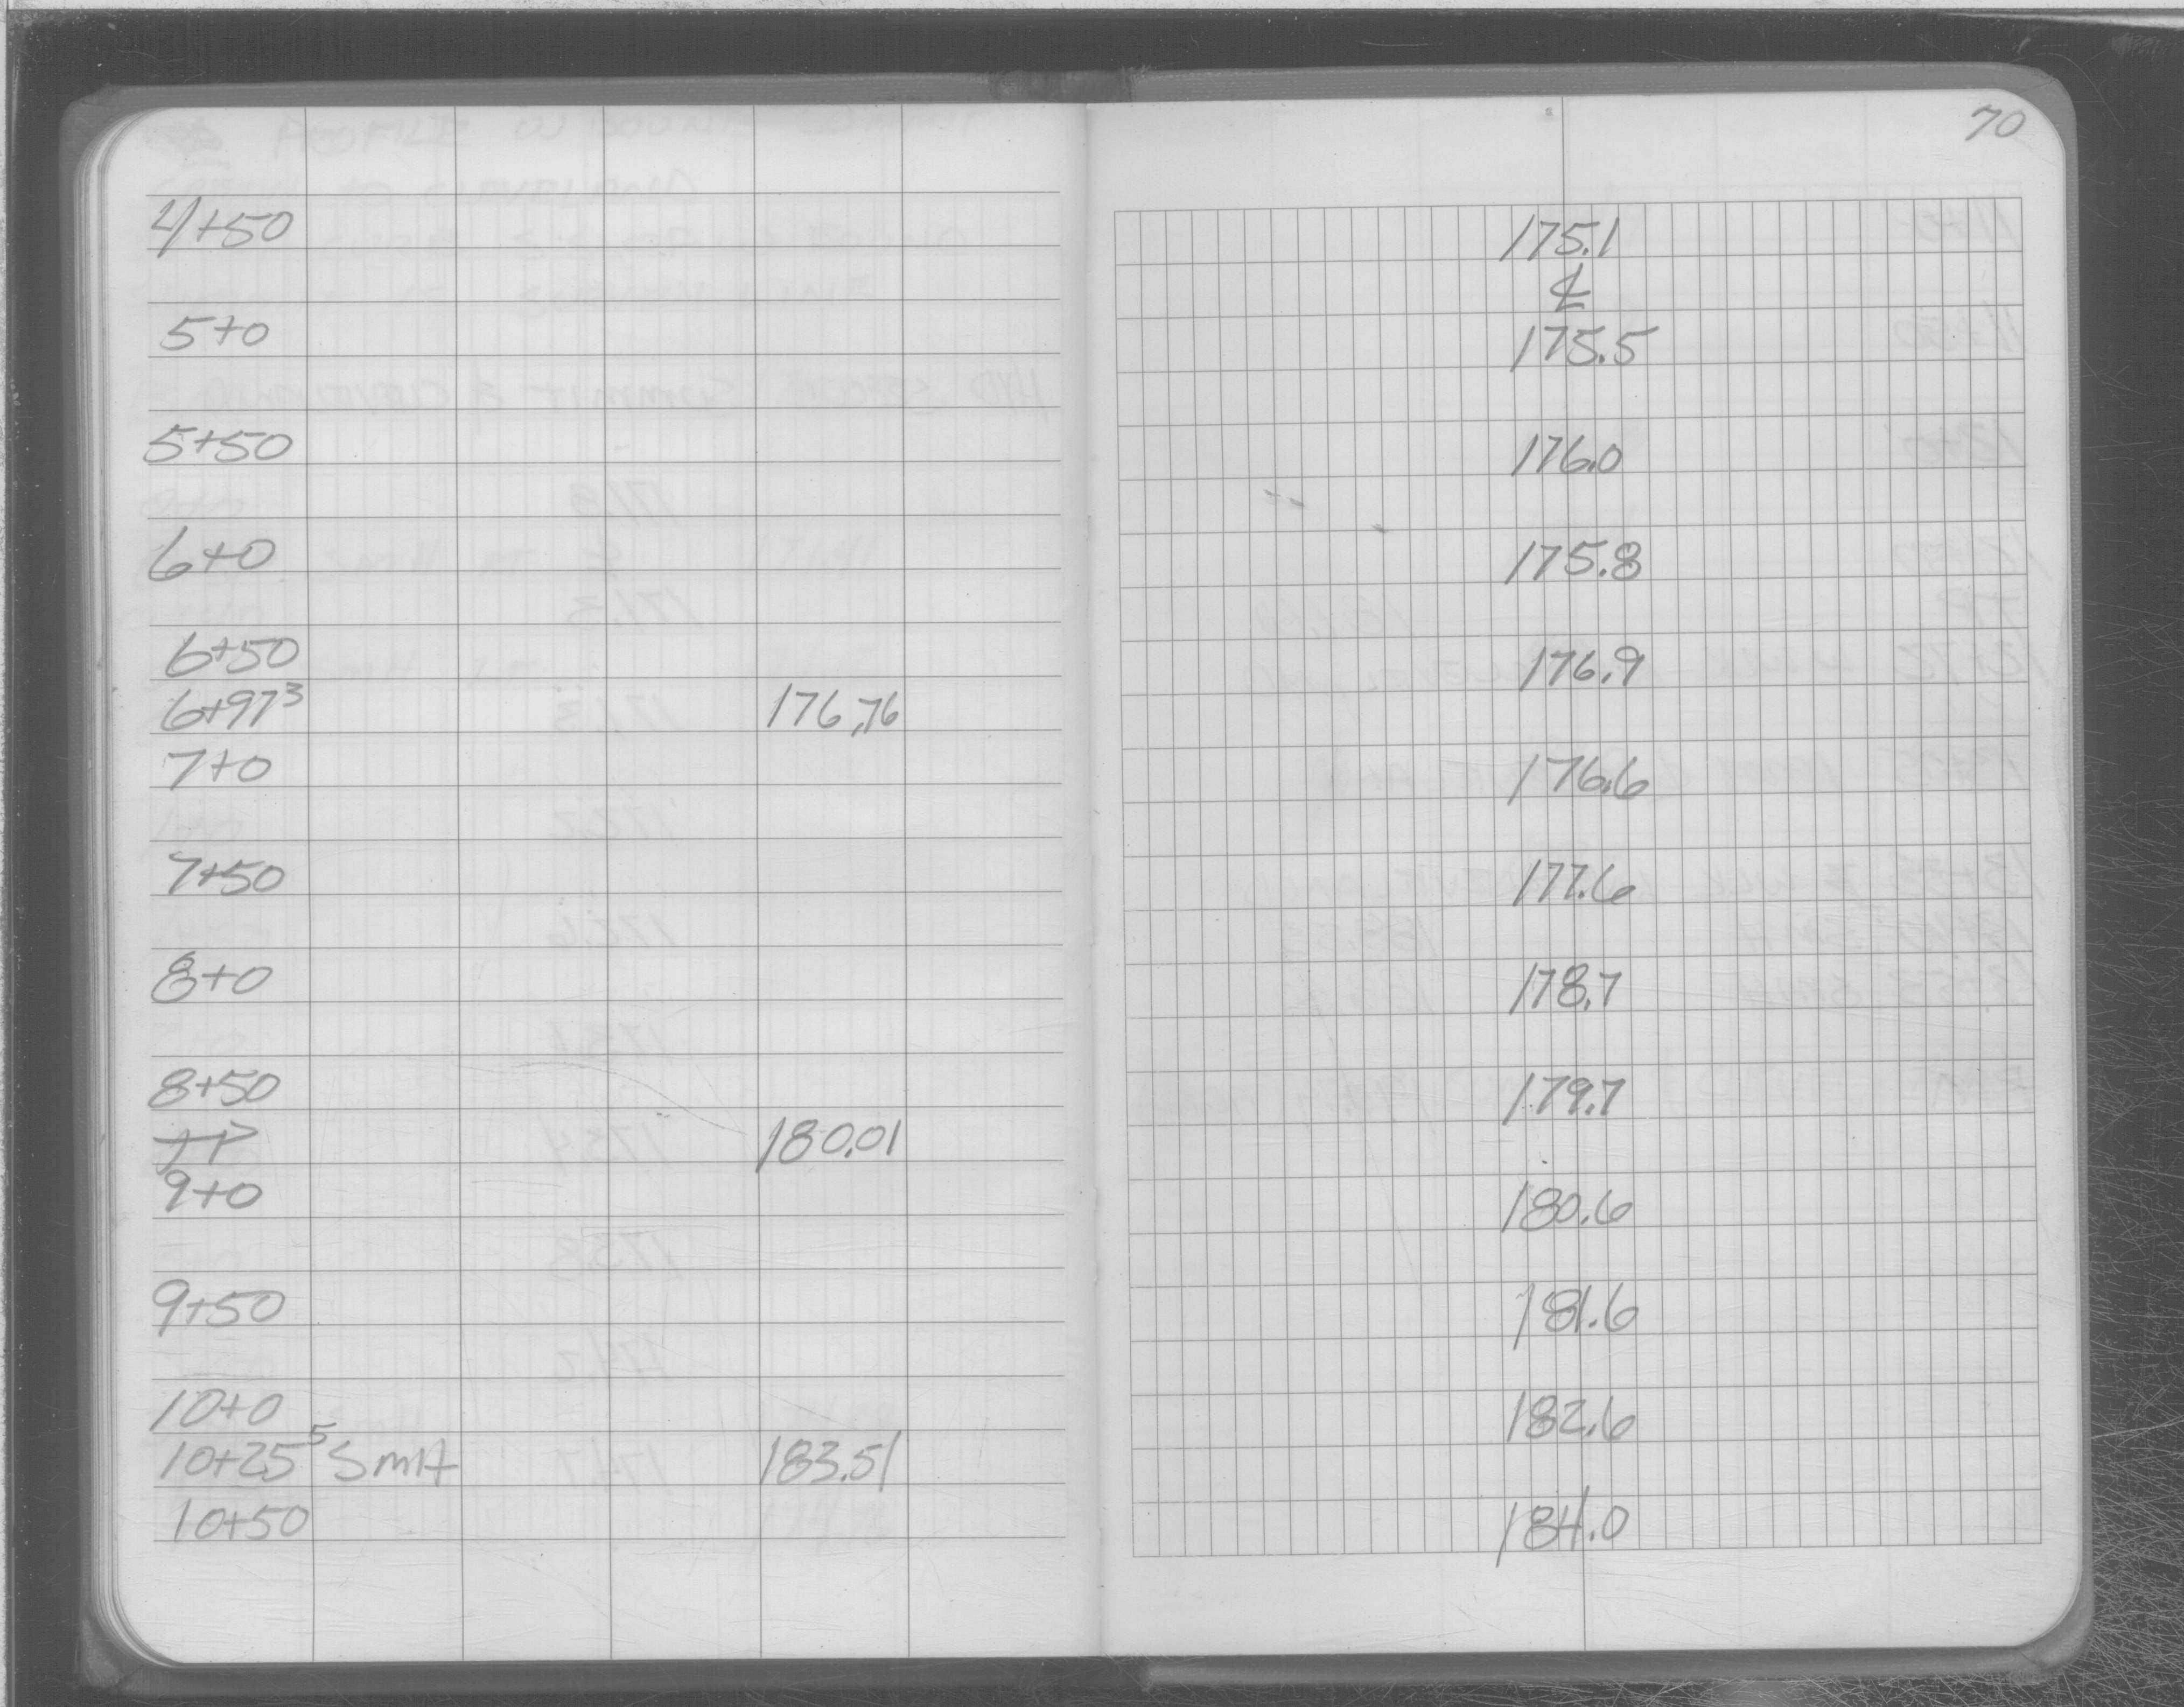 70
4+50 175.1
℄
5+0 175.5
5+50 176.0
6+0 175.8
6+50 176.9
6+97³ 176.76
7+0 176.6
7+50 177.6
8+0 178.7
8+50 179.7
TP 180.01
9+0 180.6
9+50 181.6
10+0 182.6
10+25⁵ SMH 183.51
10+50 184.0